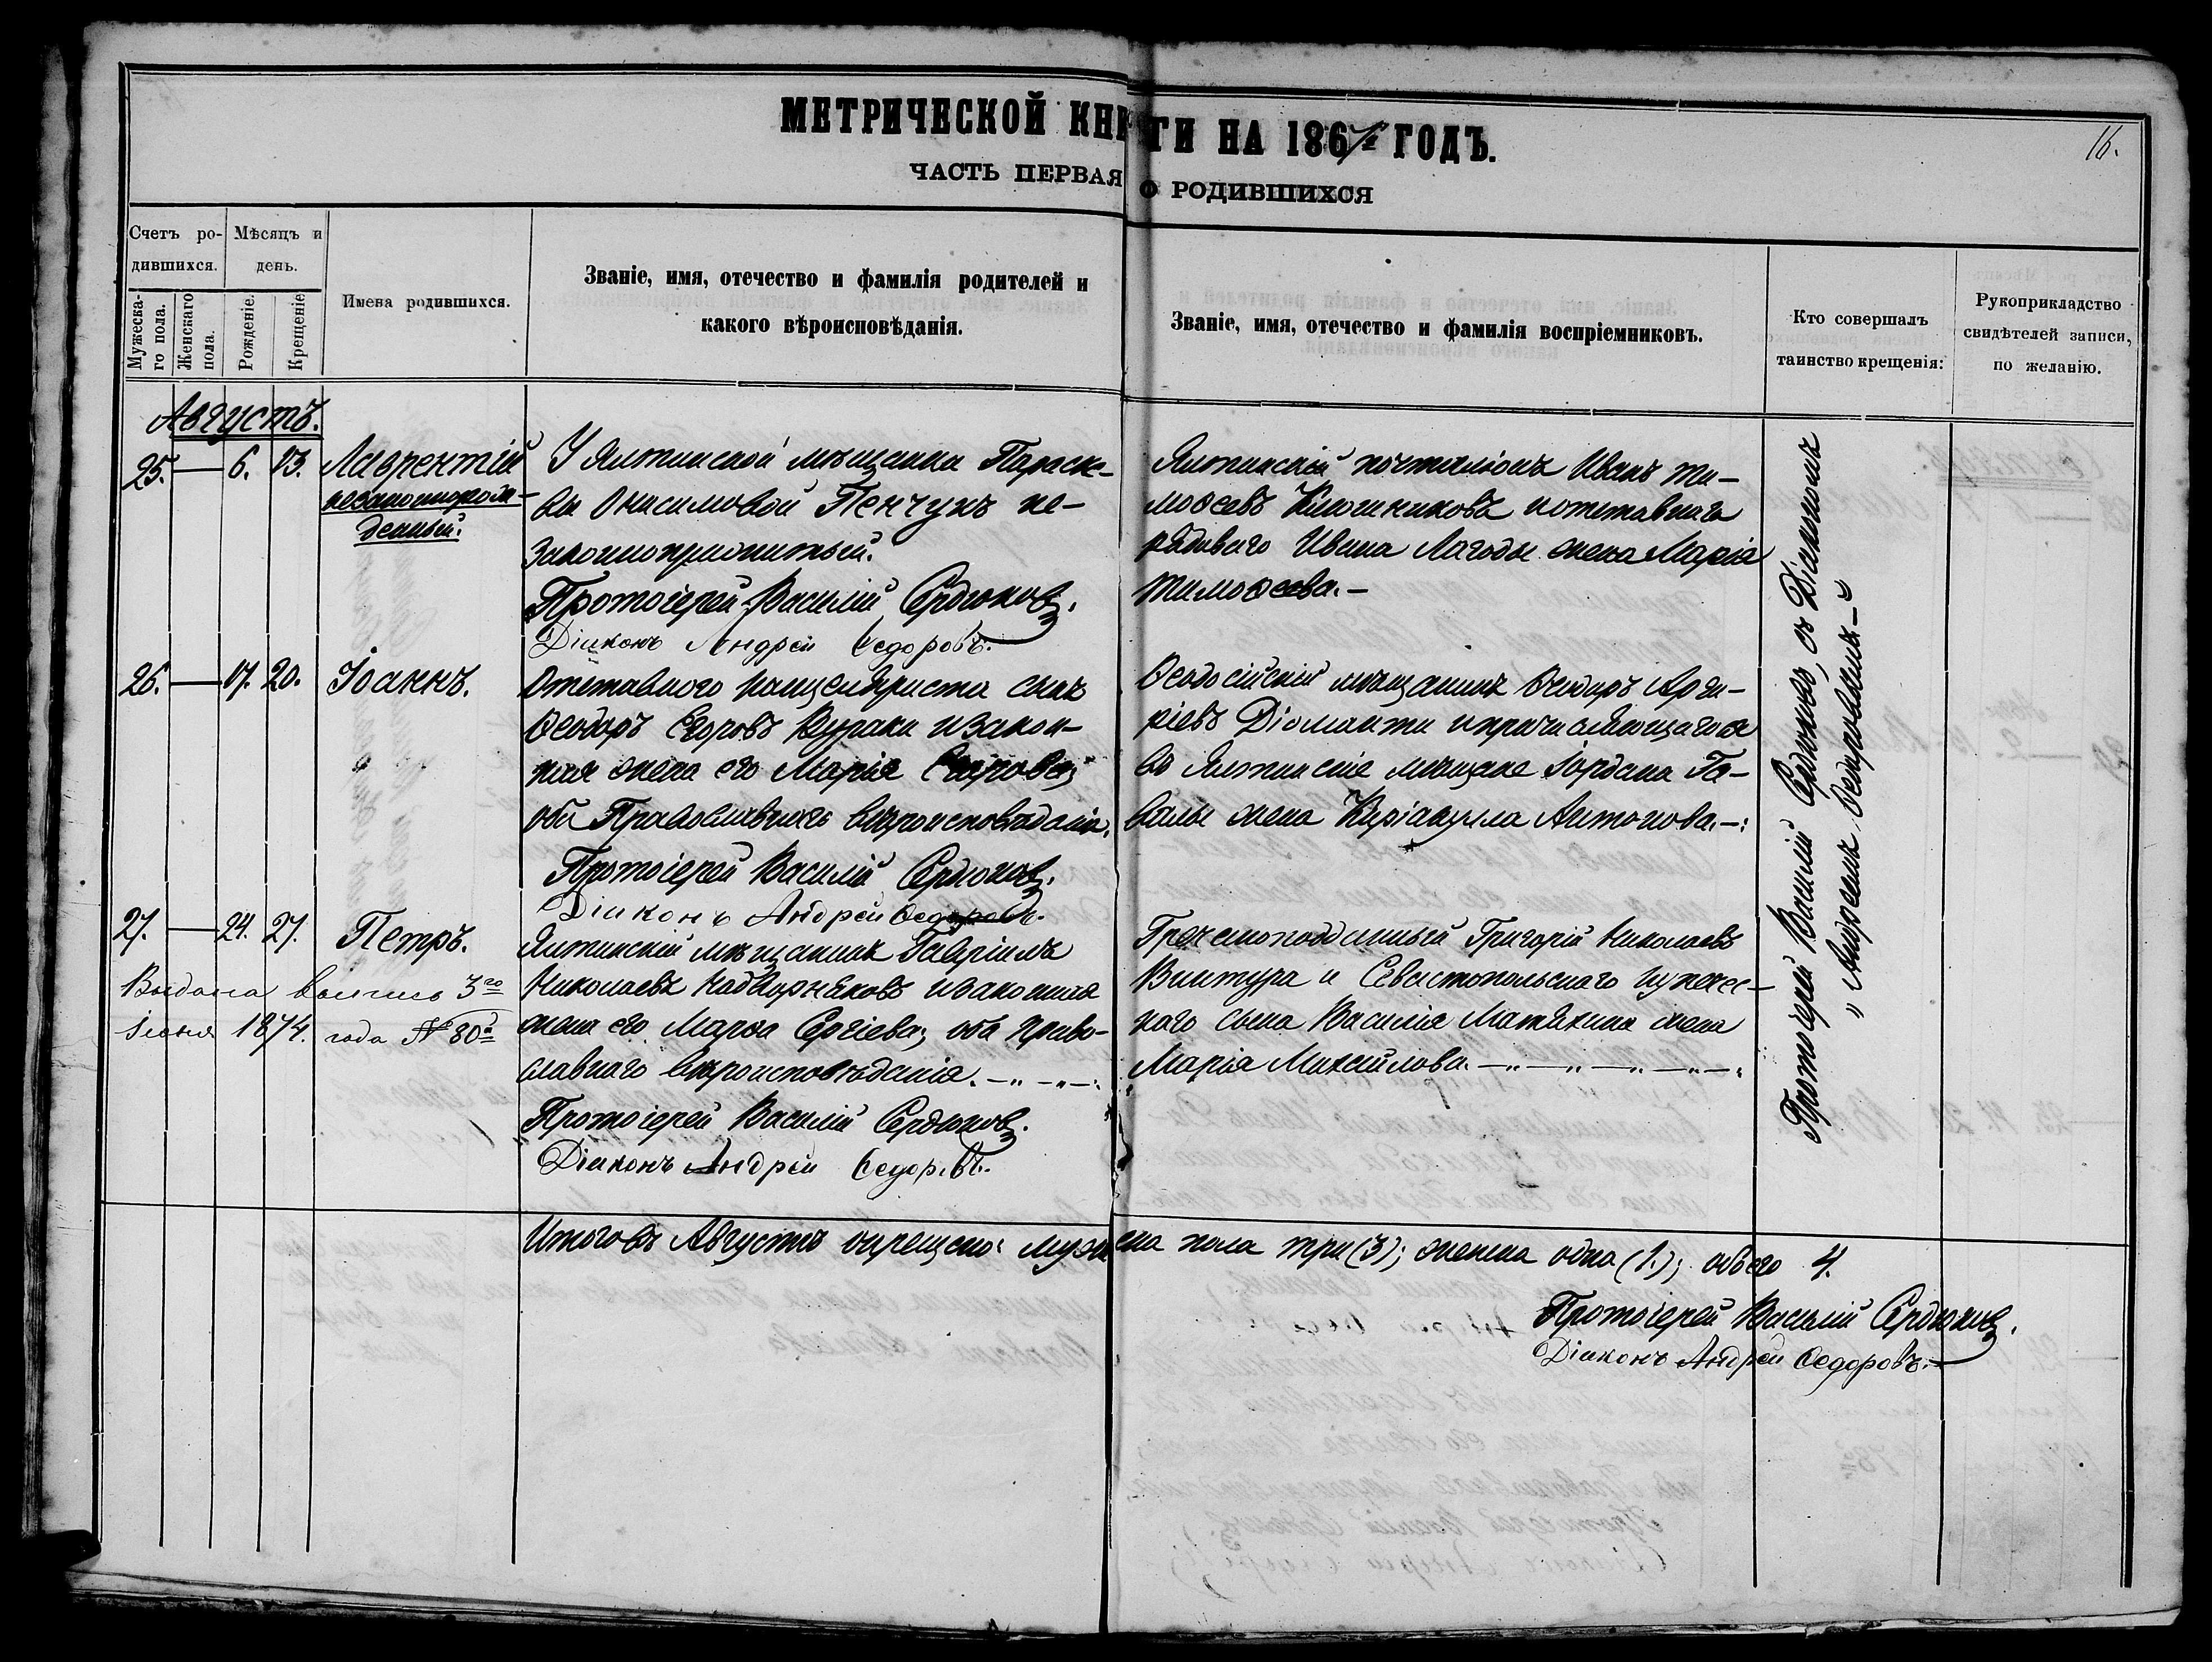 МЕТРИЧЕСКОЙ КНИГИ НА 186 ГОДЪ.
16.
ЧАСТЬ ПЕРВАЯ О РОДИВШИХСЯ
Счетъ ро-
дившихся.
Мужеска-
го пола.
Женскаго
пола.
Мѣсяцъ и
день.
Рожденіе.
Крещеніе.
Имена родившихся.
Званіе, имя, отечество и фамилія родителей и
какого вѣроисповѣданія.
Званіе, имя, отечество и фамилія воспріемниковъ.
Кто совершалъ
таинство крещенія:
Рукоприкладство
свидѣтелей записи,
по желанію.
Августъ.
25. — 6. 13. Лаврентій
незаконнорож-
денный.
У Ялтинской мѣщанки Параске-
вы Онисимовой Пенчукъ не-
законноприжитый.
Протоіерей Василій Сердюковъ.
Діаконъ Андрей Ѳедоровъ.
Ялтинскій почталіонъ Иванъ Ти-
моѳеевъ Ключниковъ и отставнаго
рядоваго Ивана Лагоды жена Марія
Тимоѳеева.—
26. — 17. 20. Іоаннъ.
Отставного канцеляриста сынъ
Ѳеодоръ Егоровъ и закон-
ная жена его Марія
оба Православнаго вѣроисповѣданія.
Протоіерей Василій Сердюковъ.
Діаконъ Андрей Ѳедоровъ.
Ѳеодосійскій мѣщанинъ Ѳеодоръ
Діоманти и причисляющагося
въ Ялтинскіе мѣщане Іордана Га-
валы жена Киріакулла Антонова.—:
27. — 24. 27. Петръ.
Выдана выпись 3го
Іюня 1874. года № 80й
Ялтинскій мѣщанинъ Гавріилъ
Николаевъ Надворняковъ и законная
жена его Марѳа Сергіева; оба право-
славнаго вѣроисповѣданія.—„—„—:
Протоіерей Василій Сердюковъ.
Діаконъ Андрей Ѳедоровъ.
Греческоподданный Григорій Николаевъ
Винтура и Севастопольского купечес-
кого сына Василія Матякина жена
Марія Михайлова.—„—„—„—„—„
Протоіерей Василій Сердюковъ, съ Діакономъ
„ Андреемъ Ѳедоровымъ.—„
Итого въ Августѣ окрещено: мужеска пола три (3); женска одна (1.); обоего 4.
Протоіерей Василій Сердюковъ.
Діаконъ Андрей Ѳедоровъ.—